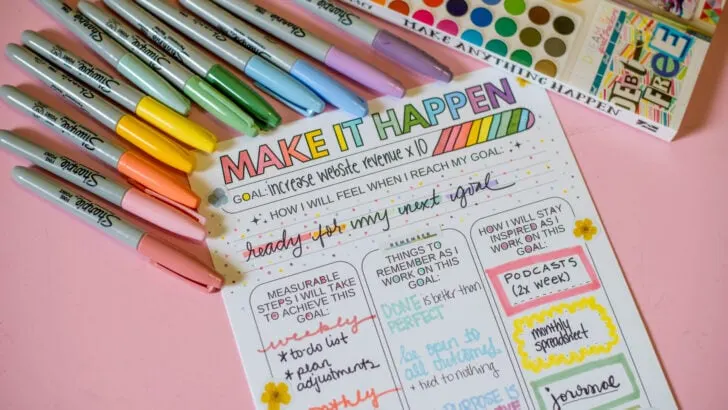 Sharpie
Sharpie
Sharpie
Sharpie
Sharpie
Sharpie
Sharpie
MAKE ANYTHING HAPPEN
DEBT
FREE
MAKE IT HAPPEN
GOAL: increase website revenue x 10
HOW I WILL FEEL WHEN I REACH MY GOAL:
ready for my next goal
MEASURABLE
STEPS I WILL TAKE
TO ACHIEVE THIS
GOAL:
weekly
*to do list
*plan
adjustments
monthly
REMEMBER
THINGS TO
REMEMBER AS I
WORK ON THIS
GOAL:
DONE is better than
PERFECT
be open to
all outcomes
+ tied to nothing
PURPOSE IS
HOW I WILL STAY
INSPIRED AS I
WORK ON THIS
GOAL:
PODCASTS
(2x week)
monthly
spreadsheet
journal